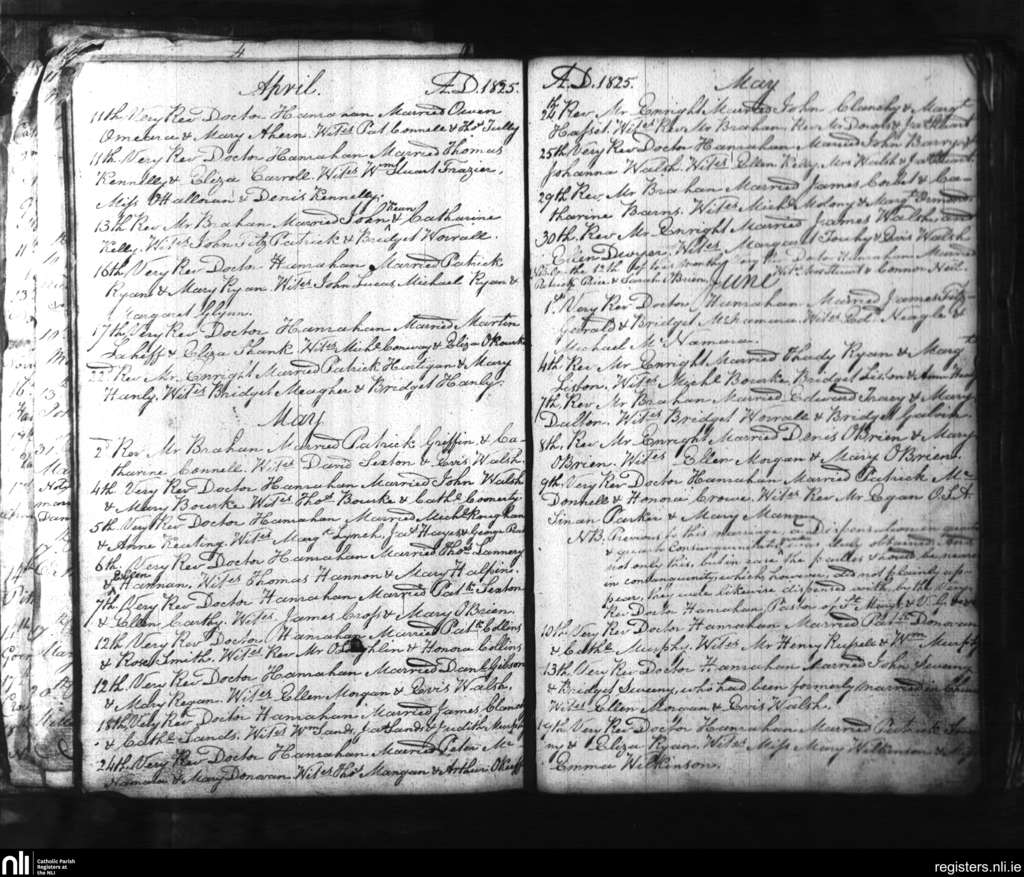 4
April. A.D. 1825.
11th Very Rev Doctor Hanrahan Married Owen
Omeara & Mary Ahern. Wites Pat Connell & Thos Tully
11th Very Rev Doctor Hanrahan Married Thomas
Kennelly & Eliza Carroll. Wites Wm Stuart Frazier,
Miss O'Halloran & Denis Kennelly.
13th Rev Mr Brahan Married John & Catharine
Kelly. Wites John Fitz Patrick & Bridget Worrall.
16th Very Rev Doctor Hanrahan Married Patrick
Ryan & Mary Ryan Wites John Lucas Michael Ryan &
Margaret Glynn.
17th Very Rev Doctor Hanrahan Married Martin
Lahiff & Eliza Shank Wites Michl Conway & Eliza O'Rourke
22d Rev Mr. Enright Married Patrick Hartigan & Mary
Hanly. Wites Bridget Meagher & Bridget Hanly.
May
2d Rev Mr Brahan Married Patrick Griffin & Ca-
tharine Connell. Wites David Sexton & Evis Walsh.
4th Very Rev Doctor Hanrahan Married John Walsh
& Mary Bourke. Wites Thos Bourke & Cathe Coonerty
5th Very Rev Doctor Hanrahan Married Michl Roughan
& Anne Keating. Wites Margt Lynch, Jas Hayes & George
6th Very Rev Doctor Hanrahan Married Thos Lannery
& Ellen Hannan. Wites Thomas Hannon & Mary Halpine.
7th Very Rev Doctor Hanrahan Married Patk Sexton
& Ellen Carthy. Wites James Cross & Mary O'Brien.
12th Very Rev Doctor Hanrahan Married Patk Collins
& Rose Smith. Wites Rev Mr & Honora Collins
12th Very Rev Doctor Hanrahan Married Danl Gibson
& Mary Regan. Wites Ellen Morgan & Evis Walsh.
18th Very Rev Doctor Hanrahan Married James
& Cathe Sands. Wites Wm Sands, Jas Sands & Judith Murphy
24th Very Rev Doctor Hanrahan Married Peter Mc
Namara & Mary Donovan Wites Thos Mangan & Arthur O'Keeff
A.D. 1825. May
24th Rev Mr Enright Married John Clanchy & Margt
Hasset Wites Rev Mr Brahan Rev Mr & Jas
25th Very Rev Doctor Hanrahan Married John Barry &
Johanna Walsh. Wites Ellen Kelly, Mrs Walsh & Jas
29th Rev. Mr Brahan Married James Corbet & Ca-
tharine Barns. Wites Michl Molony & Margt
30th. Rev Mr Enright Married James Walsh and
Ellen Dwyer. Wites Margaret Touhy & Evis Walsh
Patrick Price & Sarah O'Brien & Connor Neil.
June
1st. Very Rev Doctor Hanrahan Married James Fitz-
gerald & Bridget McNamara. Wites Edmd Neagle &
Michael McNamara.
4th Rev Mr Enright Married Thady Ryan & Margt
Liston. Wites Michl Bourke Bridget Liston & Anne
7th Rev Mr Brahan Married Edward Tracey & Mary
Dalton. Wites Bridget Worrall & Bridget Galvin
8th. Rev Mr Enright Married Denis O'Brien & Mary
O'Brien. Wites Ellen Morgan & Mary O'Brien.
9th Very Rev Doctor Hanrahan Married Patrick Mc
Donnell & Honora Crowe. Wites Rev Mr Egan O.S.A
Sinan Parker & Mary
NB. Previous to this marriage Dispensations in
& duly obtained,
not only this, but in case the parties should be
in consanguinity, which, however, did not plainly ap-
pear, they were likewise dispensed with by the Very
Rev. Doctor Hanrahan Pastor of St. Mary's & V.G. &c &c
10th Very Rev Doctor Hanrahan Married Patk Donovan
& Cathe Murphy. Wites Mr Henry Russell & Wm Murphy
13th Very Rev Doctor Hanrahan Married John Sweeny
& Bridget Sweeny, who had been formerly married
Wites Ellen Morgan & Evis Walsh.
19th Very Rev Doctor Hanrahan Married Patrick
& Eliza Ryan. Wites Miss Mary Wilkinson &
Emma Wilkinson.
nli
Catholic Parish
Registers at
the NLI
registers.nli.ie